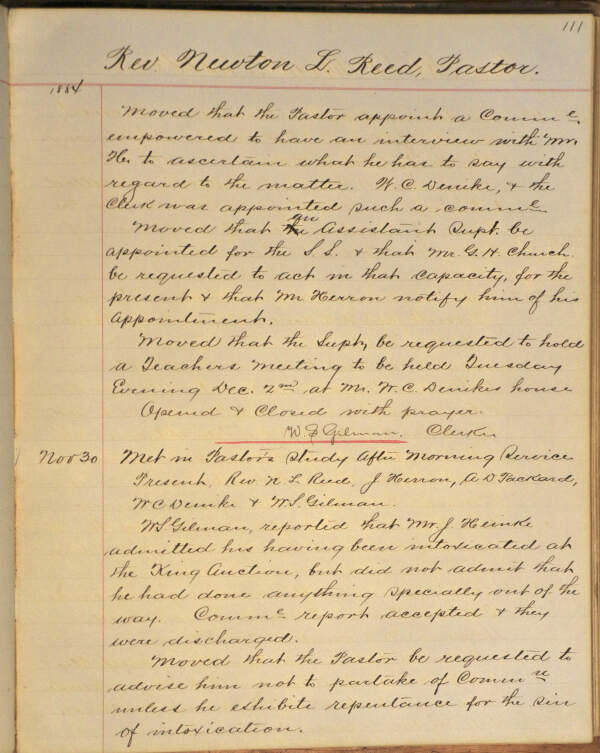 111
Rev. Newton L. Reed, Pastor.
1884
Moved that the Pastor appoint a Comme
empowered to have an interview with Mr.
He. to ascertain what he has to say with
regard to the matter. W. C. Denike, & the
Clerk was appointed such a comme
Moved that an Assistant Supt. be
appointed for the S.S. & that Mr. G. H. Church
be requested to act in that capacity, for the
present & that Mr Herron notify him of his
appointment.
Moved that the Supt, be requested to hold
a Teachers Meeting to be held Tuesday
Evening Dec. 2nd at Mr. W. C. Denikes house
Opened & Closed with prayer.
W. S. Gilman. Clerk
Nov 30 Met in Pastor's Study After Morning Service
Present, Rev. N. L. Reed, J Herron, A D Packard,
W C Denike & W. S. Gilman.
W S. Gilman, reported that Mr. J. Heinke
admitted his having been intoxicated at
the King Auction, but did not admit that
he had done anything specially out of the
way. Comme report accepted & they
were discharged.
Moved that the Pastor be requested to
advise him not to partake of Commn
unless he exhibits repentance for the sin
of intoxication.